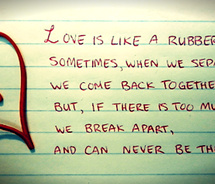 LOVE IS LIKE A RUBBER
SOMETIMES, WHEN WE SEPA
WE COME BACK TOGETHE
BUT, IF THERE IS TOO MU
WE BREAK APART,
AND CAN NEVER BE TH